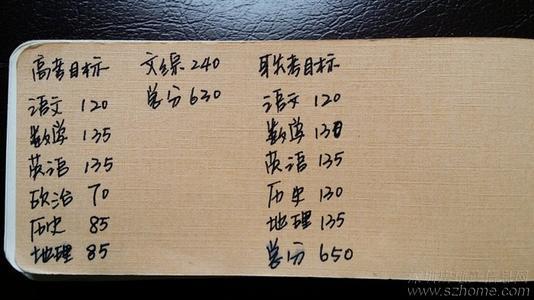 高考目标
语文 120
数学 135
英语 135
政治 70
历史 85
地理 85
文综 240
总分 630
联考目标
语文 120
数学 130
英语 135
历史 130
地理 135
总分 650
www.szhome.com